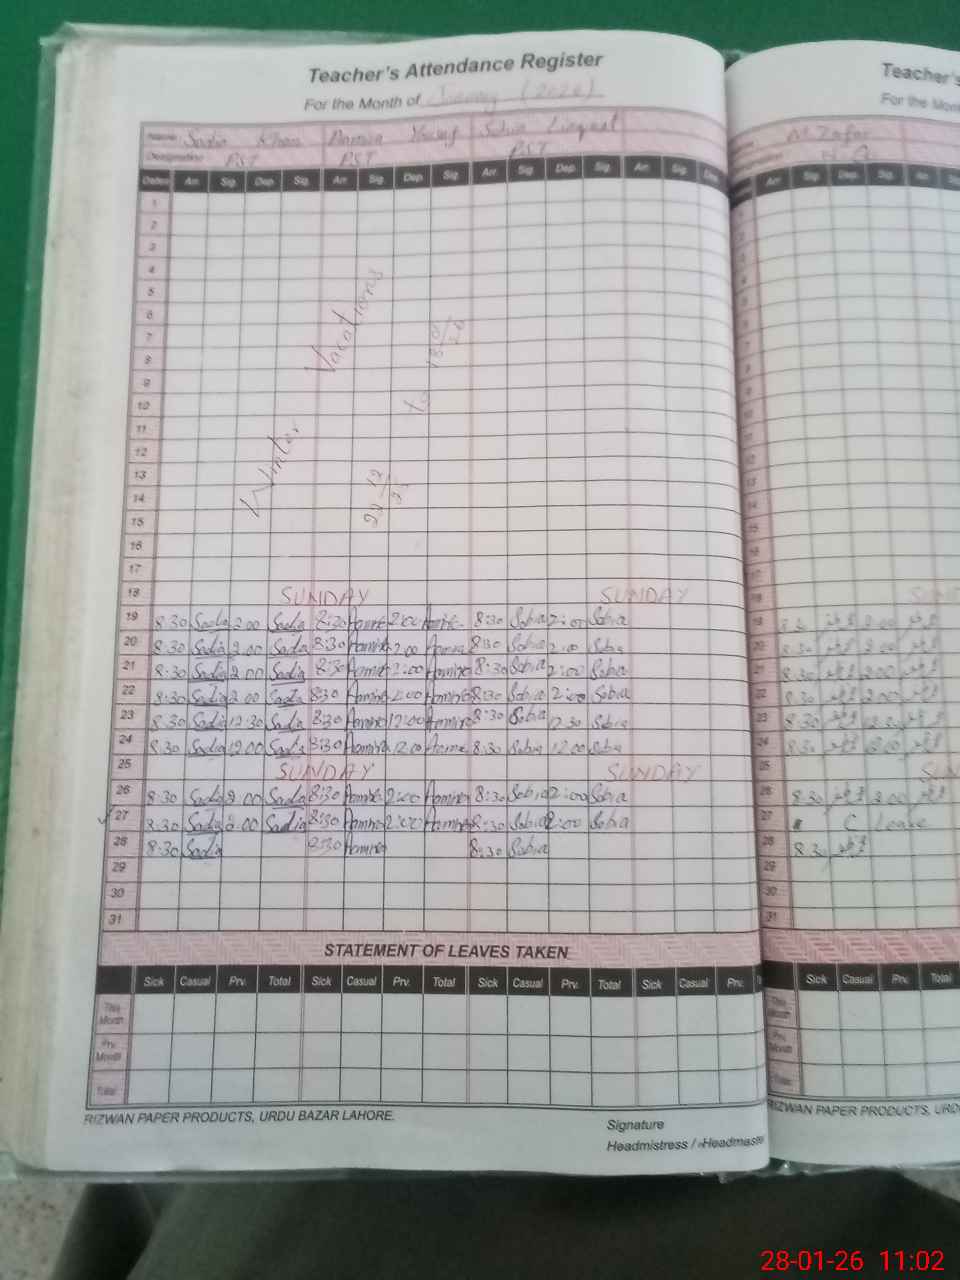 Teacher's Attendance Register
For the Month of January (2026)
Name Sadia Khan Aamina Yousaf Sobia Liaqat
Designation PST PST PST
Dates Arr. Sig. Dep. Sig. Arr. Sig. Dep. Sig. Arr. Sig. Dep. Sig. Arr. Sig. Dep.
1
2
3
4
5
6
7
8
9
10
11
12
13
14
15
16
17
Winter Vacations
22 12/25 to 18 01/26
18 SUNDAY SUNDAY
19 8:30 Sadia 2:00 Sadia 8:30 Aamina 2:00 Aamina 8:30 Sobia 2:00 Sobia
20 8:30 Sadia 2:00 Sadia 8:30 Aamina 2:00 Aamina 8:30 Sobia 2:00 Sobia
21 8:30 Sadia 2:00 Sadia 8:30 Aamina 2:00 Aamina 8:30 Sobia 2:00 Sobia
22 8:30 Sadia 2:00 Sadia 8:30 Aamina 2:00 Aamina 8:30 Sobia 2:00 Sobia
23 8:30 Sadia 12:30 Sadia 8:30 Aamina 12:00 Aamina 8:30 Sobia 12:30 Sobia
24 8:30 Sadia 12:00 Sadia 8:30 Aamina 12:00 Aamina 8:30 Sobia 12:00 Sobia
25 SUNDAY SUNDAY
26 8:30 Sadia 2:00 Sadia 8:30 Aamina 2:00 Aamina 8:30 Sobia 2:00 Sobia
27 8:30 Sadia 2:00 Sadia 8:30 Aamina 2:00 Aamina 8:30 Sobia 2:00 Sobia
28 8:30 Sadia 8:30 Aamina 8:30 Sobia
29
30
31
STATEMENT OF LEAVES TAKEN
Sick Casual Prv. Total Sick Casual Prv. Total Sick Casual Prv. Total Sick Casual Prv.
This Month
Prv. Month
Total
RIZWAN PAPER PRODUCTS, URDU BAZAR LAHORE.
Signature
Headmistress / Headmaste
Teacher's
For the Mon
M. Zafar
Arr. Sig. Dep. Sig. Arr.
18 SUN
19 8:30 2:00
20 8:30 2:00
21 8:30 2:00
22 8:30 2:00
23 8:30 12:30
24 8:30 12:00
25 SUN
26 8:30 2:00
27 C Leave
28 8:30
29
30
31
Sick Casual Prv. Total
This Month
Prv. Month
Total
RIZWAN PAPER PRODUCTS, URD
28-01-26 11:02